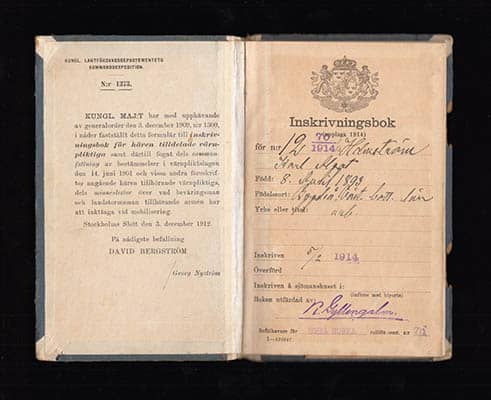 KUNGL. LANTFÖRSVARSDEPARTEMENTETS
KOMMANDOEXPEDITION.
N:r 1273.
KUNGL. MAJ:T har med upphävande
av generalorder den 3. december 1909, nr 1309,
i nåder fastställt detta formulär till inskriv-
ningsbok för hären tilldelade värn-
pliktiga samt därtill fogat dels samman-
fattning av bestämmelser i värnpliktslagen
den 14. juni 1901 och vissa andra föreskrif-
ter angående hären tillhörande värnpliktiga,
dels minneslistor över vad beväringsman
och landstormsman tillhörande armén har
att iakttaga vid mobilisering.
Stockholms Slott den 3. december 1912.
På nådigste befallning
DAVID BERGSTRÖM
Georg Nyström
Inskrivningsbok
(upplaga 1914)
för nr 12 70/1914 Holmström
Karl
Född: 8. April 1893
Födelseort:
Yrke eller titel: arb.
Inskriven 5/2 1914
Överförd
Inskriven å sjömanshuset i:
(ifylles med blyerts)
Boken utfärdad av: Gyllengahm.
Befälhavare för rullför.-omr. nr 70